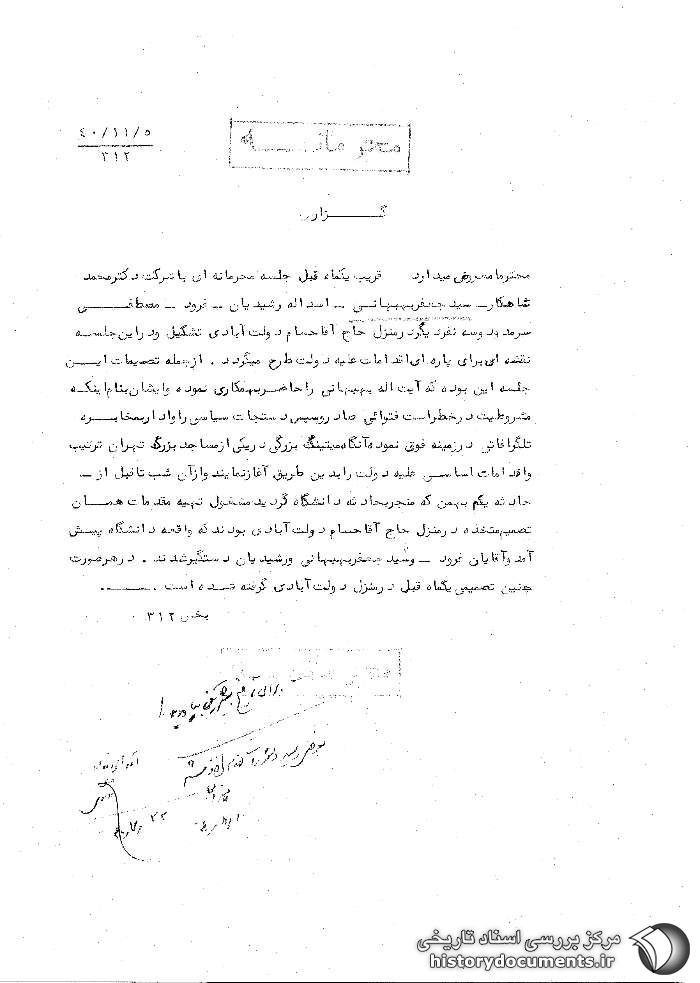 ۴۰/۱۱/۵
۳۱۲
محرمانه
گزارش
محترما معروض میدارد قریب یکماه قبل جلسه محرمانه ای با شرکت دکتر محمد
شاهکار ـ سید جعفر بهبهانی ـ اسداله رشیدیان ـ فرود ـ مصطفی
سرمد و دوسه نفر دیگر در منزل حاج آقا حسام دولت آبادی تشکیل و در این جلسه
نقشه ای برای پاره ای اقدامات علیه دولت طرح میگردد . از جمله تصمیمات این
جلسه این بوده که آیت اله بهبهانی را حاضر بهمکاری نموده و ایشان بنام اینکه
مشروطیت در خطر است فتوائی صادر و سپس دستجات سیاسی را وادار بمخابره
تلگرافاتی در زمینه فوق نموده و آنگاه میتینگ بزرگی در یکی از مساجد بزرگ تهران ترتیب
و اقدامات اساسی علیه دولت را بدین طریق آغاز نمایند و از آن شب تا قبل از ـ
حادثه یکم بهمن که منجر بحادثه دانشگاه گردید مشغول تهیه مقدمات همان
تصمیم متخذه در منزل حاج آقا حسام دولت آبادی بودند که واقعه دانشگاه پیش
آمد و آقایان فرود ـ وسید جعفر بهبهانی و رشیدیان دستگیر شدند . در هر صورت
چنین تصمیمی یکماه قبل در منزل دولت آبادی گرفته شده است .
بخش ۳۱۲
محرمانه
مرکز بررسی اسناد تاریخی
historydocuments.ir